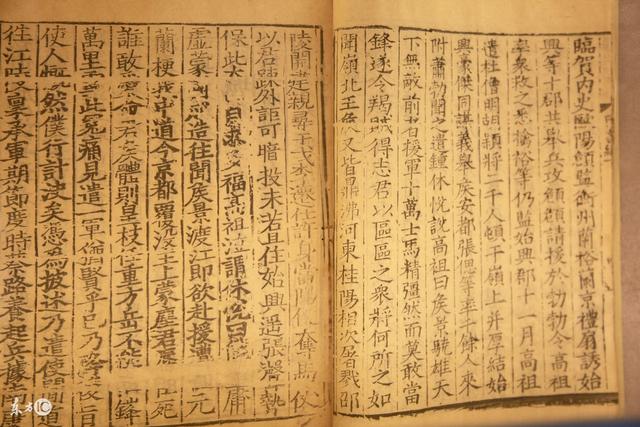 臨賀内史歐陽頠監衡州蘭裕蘭京禮扇誘始
興等十郡共舉兵攻頠頠請援於勃勃令高祖
率衆救之悉擒裕等仍監始興郡十一月高祖
遣杜僧明胡穎將二千人頓于嶺上并厚結始
興豪傑同謀義舉侯安都張偲等率千餘人來
附蕭勃聞之遣鍾休悅說高祖曰侯景驍雄天
下無敵前者援軍十萬士馬精彊然而莫敢當
鋒遂令羯賊得志君以區區之衆將何所之如
聞嶺北王侯又皆鼎沸河東桂陽相次屠戮邵
陵開建親尋干戈李遷仕許身當陽便奪馬仗
以君疎外詎可暗投未若且住始興遥張聲勢
保此太山自求多福高祖泣謂休悅曰僕本庸
虛蒙國成造往聞侯景渡江即欲赴援遭值元
蘭梗我中道今京都覆沒主上蒙塵君辱臣死
誰敢愛命君侯體則皇枝任重方岳不能摧鋒
萬里雪此冤痛見遣一軍猶賢乎已乃降後旨
使人慨然僕行計決矣憑爲披述乃遣使間道
往江陵稟承軍期節度時蔡路養起兵據南
东方IC